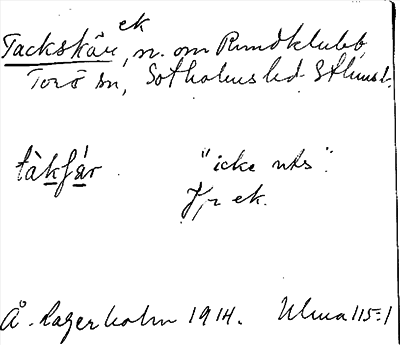 ek
Tackskär, n. om Rundklubb,
Torö sn, Sotholms hd. Sthms l.
tàkfár "icke uts".
Jfr ek.
Å. Lagerholm 1914. Ulma 115:1